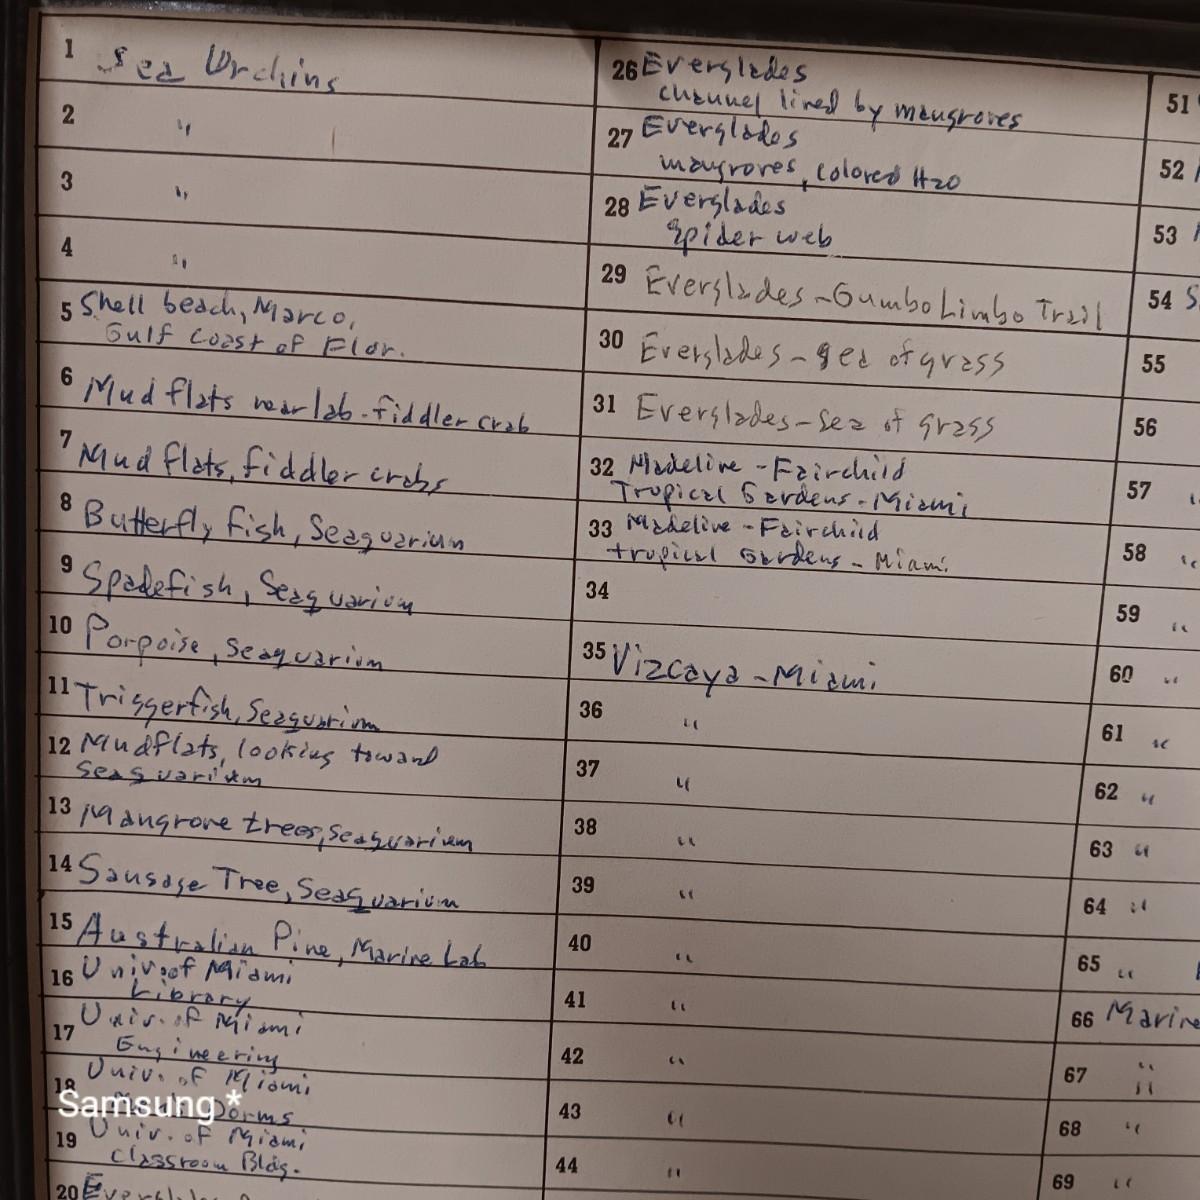 1 Sea Urchins
2 "
3 "
4 "
5 Shell beach, Marco,
Gulf Coast of Flor.
6 Mud flats near lab - fiddler crab
7 Mud flats, fiddler crabs
8 Butterfly fish, Seaquarium
9 Spadefish, Seaquarium
10 Porpoise, Seaquarium
11 Triggerfish, Seaquarium
12 Mudflats, looking toward
Seaquarium
13 Mangrove trees, Seaquarium
14 Sausage Tree, Seaquarium
15 Australian Pine, Marine Lab
16 Univ. of Miami
Library
17 Univ. of Miami
Engineering
18 Univ. of Miami
Dorms
19 Univ. of Miami
Classroom Bldg.
20
26 Everglades
channel lined by mangroves
27 Everglades
mangroves, colored H2O
28 Everglades
Spider web
29 Everglades - Gumbo Limbo Trail
30 Everglades - sea of grass
31 Everglades - Sea of grass
32 Madeline - Fairchild
Tropical Gardens - Miami
33 Madeline - Fairchild
tropical Gardens - Miami
34
35 Vizcaya - Miami
36 "
37 "
38 "
39 "
40 "
41 "
42 "
43 "
44 "
51
52
53
54 S
55
56
57 "
58 "
59 "
60 "
61 "
62 "
63 "
64 "
65 "
66 Marine
67 "
"
68 "
69 "
Samsung *